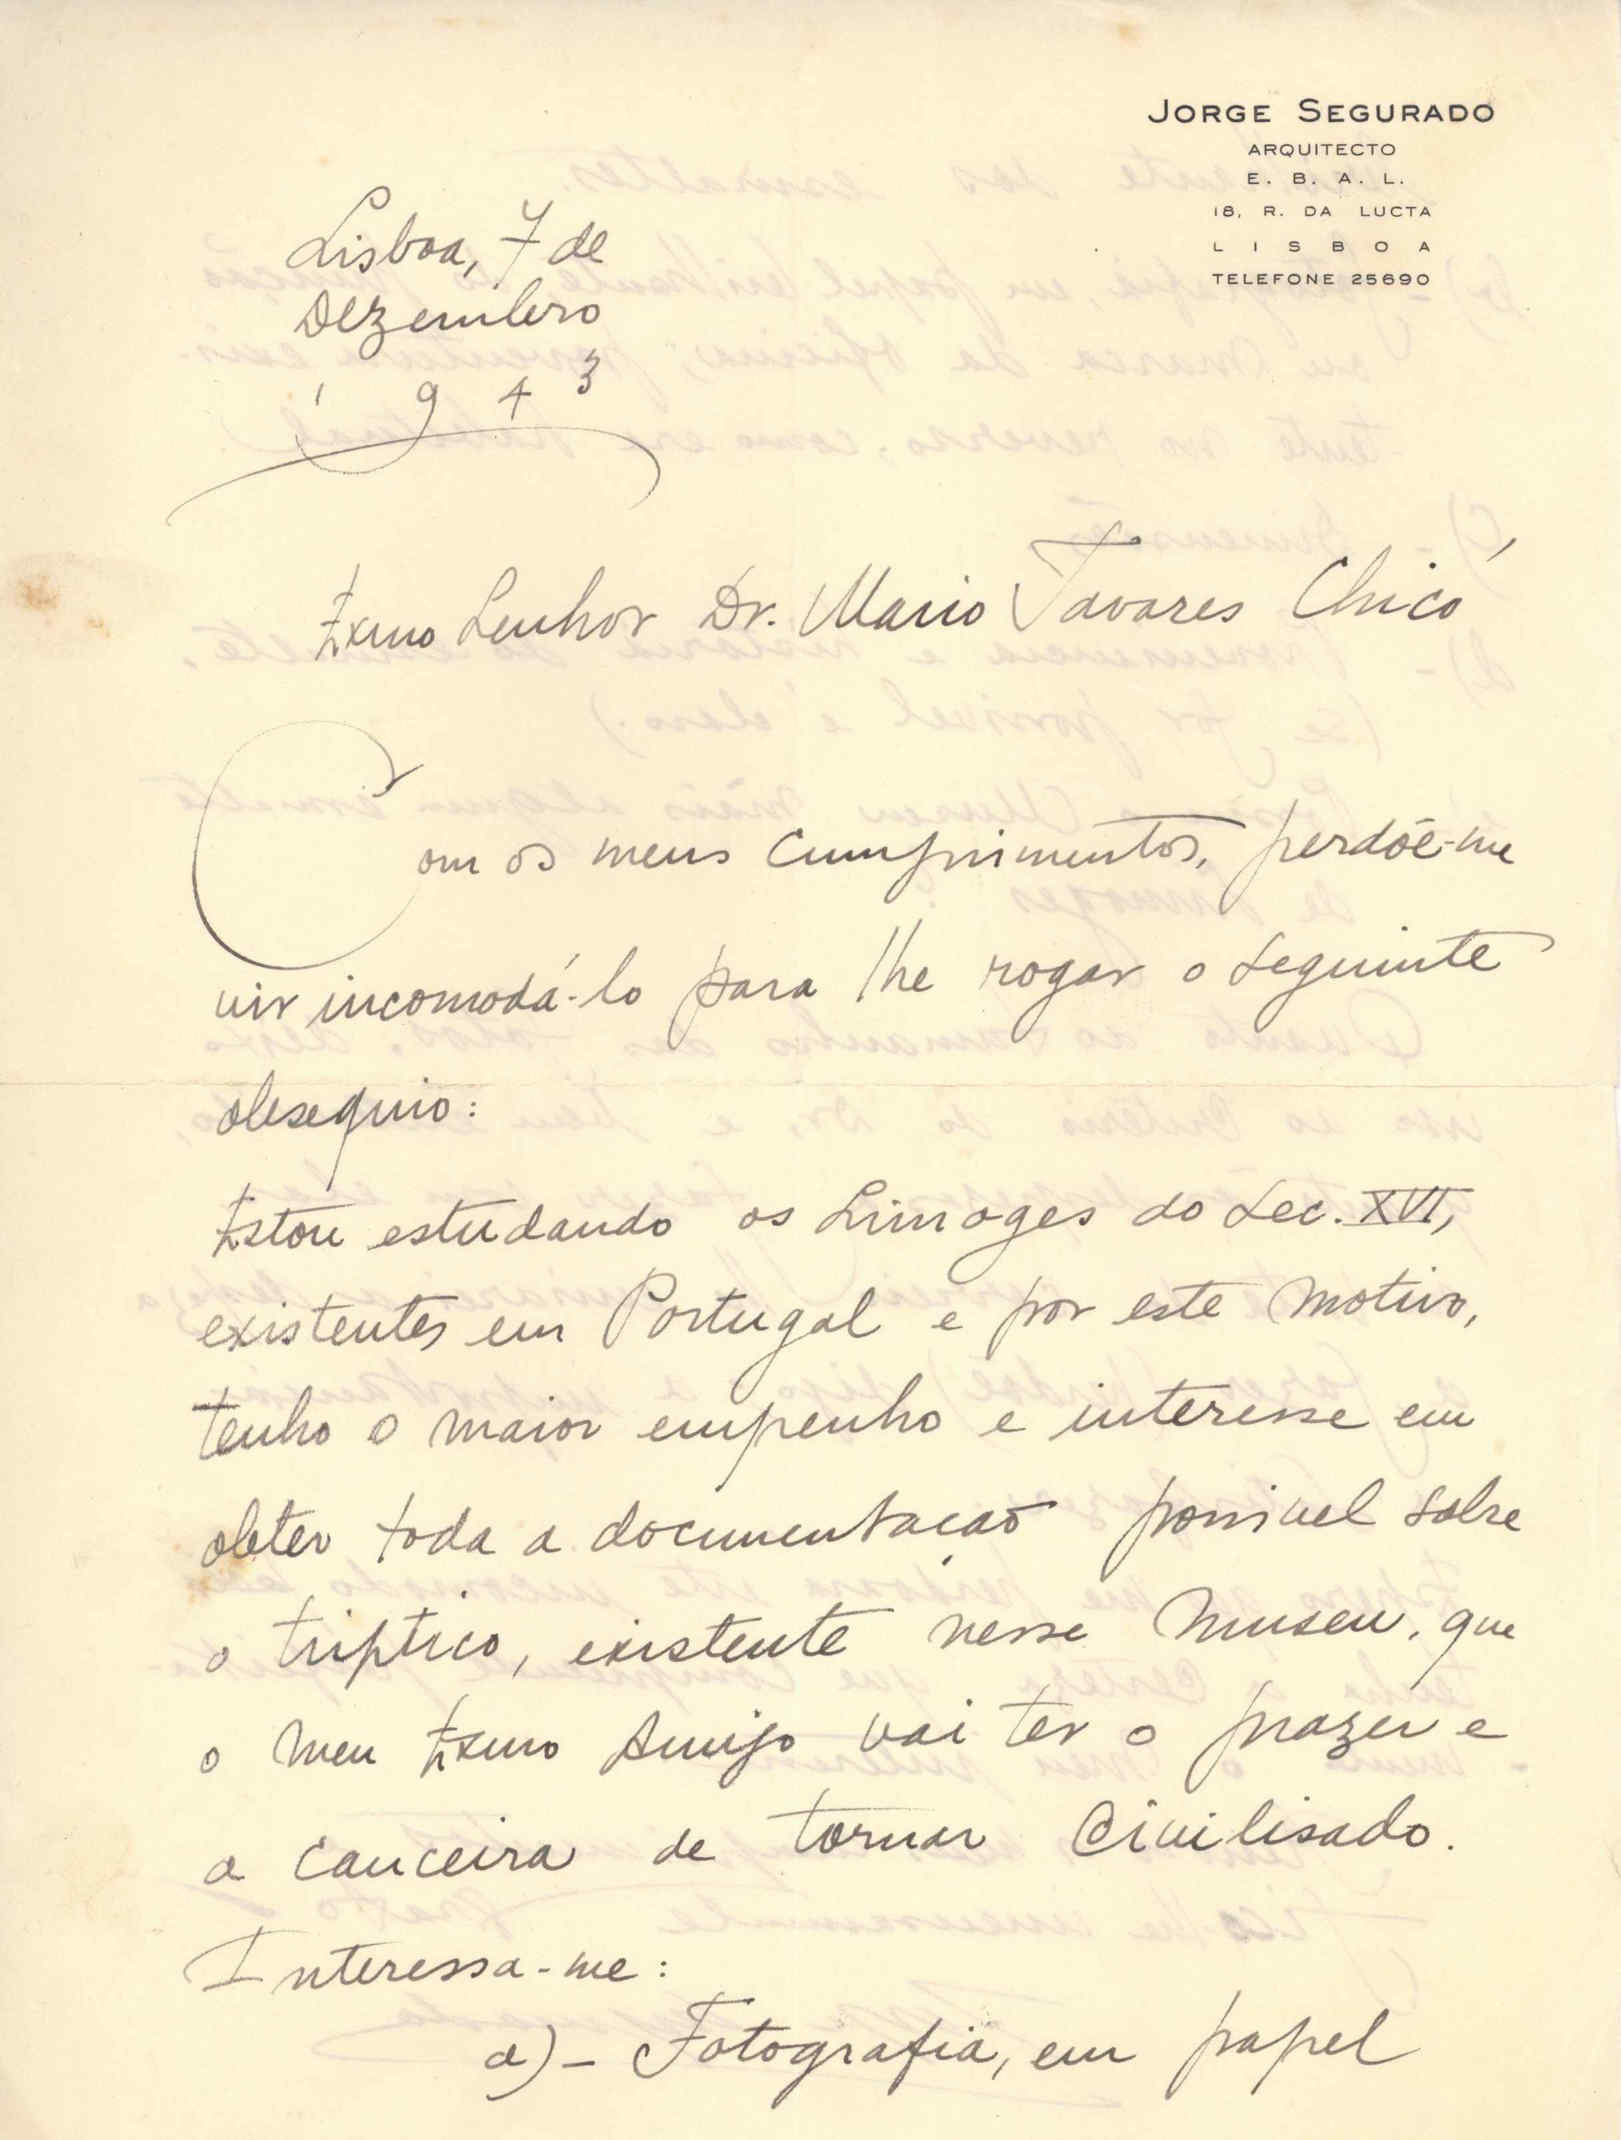 JORGE SEGURADO
ARQUITECTO
E. B. A. L.
18, R. DA LUCTA
LISBOA
TELEFONE 25690
Lisboa, 7 de
Dezembro
1943
Exmo Senhor Dr. Mario Tavares Chicó
Com os meus cumprimentos, perdôe-me
vir incomodá-lo para lhe rogar o seguinte
obsequio:
Estou estudando os Limoges do Sec. XVI,
existentes em Portugal e por este motivo,
tenho o maior empenho e interesse em
obter toda a documentação possivel sobre
o triptico, existente nesse Museu, que
o meu Exmo Amigo vai ter o prazer e
a canceira de tornar civilisado.
Interessa-me:
a) - Fotografia, em papel